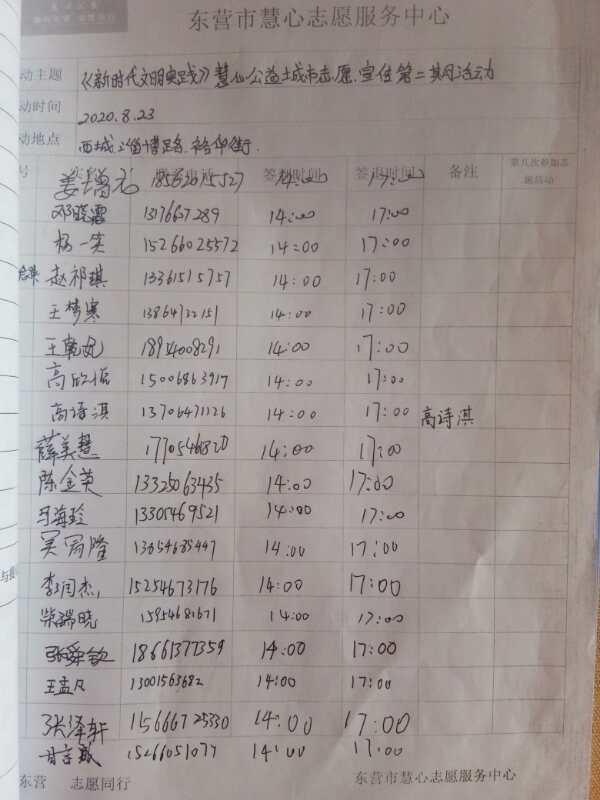 东营市慧心志愿服务中心
动主题 《新时代文明实践》慧心公益土城市志愿宣传第二期活动
动时间 2020.8.23
动地点 西城 淄博路 裕华街.
号 签到时间 签退时间 备注 第几次参加志愿活动
14:00 17:00
邓晓雷 1317667289 14:00 17:00
杨一笑 15266025572 14:00 17:00
赵祁琪 13361515757 14:00 17:00
王梦寒 13864722151 14:00 17:00
王乾妃 18954008291 14:00 17:00
高欣悟 15006863917 14:00 17:00
高诗淇 13706471126 14:00 17:00 高诗淇
薛美慧 1770546820 14:00 17:00
陈金英 13325063435 14:00 17:00
马海玲 13305469521 14:00 17:00
吴雨隆 13654685447 14:00 17:00
李闰杰 15254673176 14:00 17:00
柴瑞晓 15954681671 14:00 17:00
张舜钦 18661377359 14:00 17:00
王孟凡 13001563682 14:00 17:00
张泽轩 15666725330 14:00 17:00
15266051077 14:00 17:00
东营 志愿同行 东营市慧心志愿服务中心